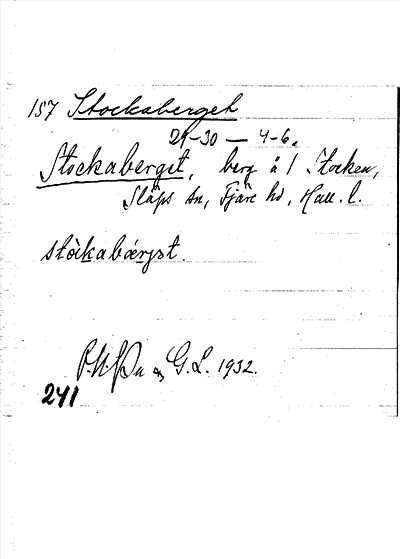 157 Stockaberget
29-30 — 4-6.
Stockaberget, berg å 1 Stocken,
Släps sn, Fjäre hd, Hall. l.
stòckabǽrjət.
& G.L. 1932.
241